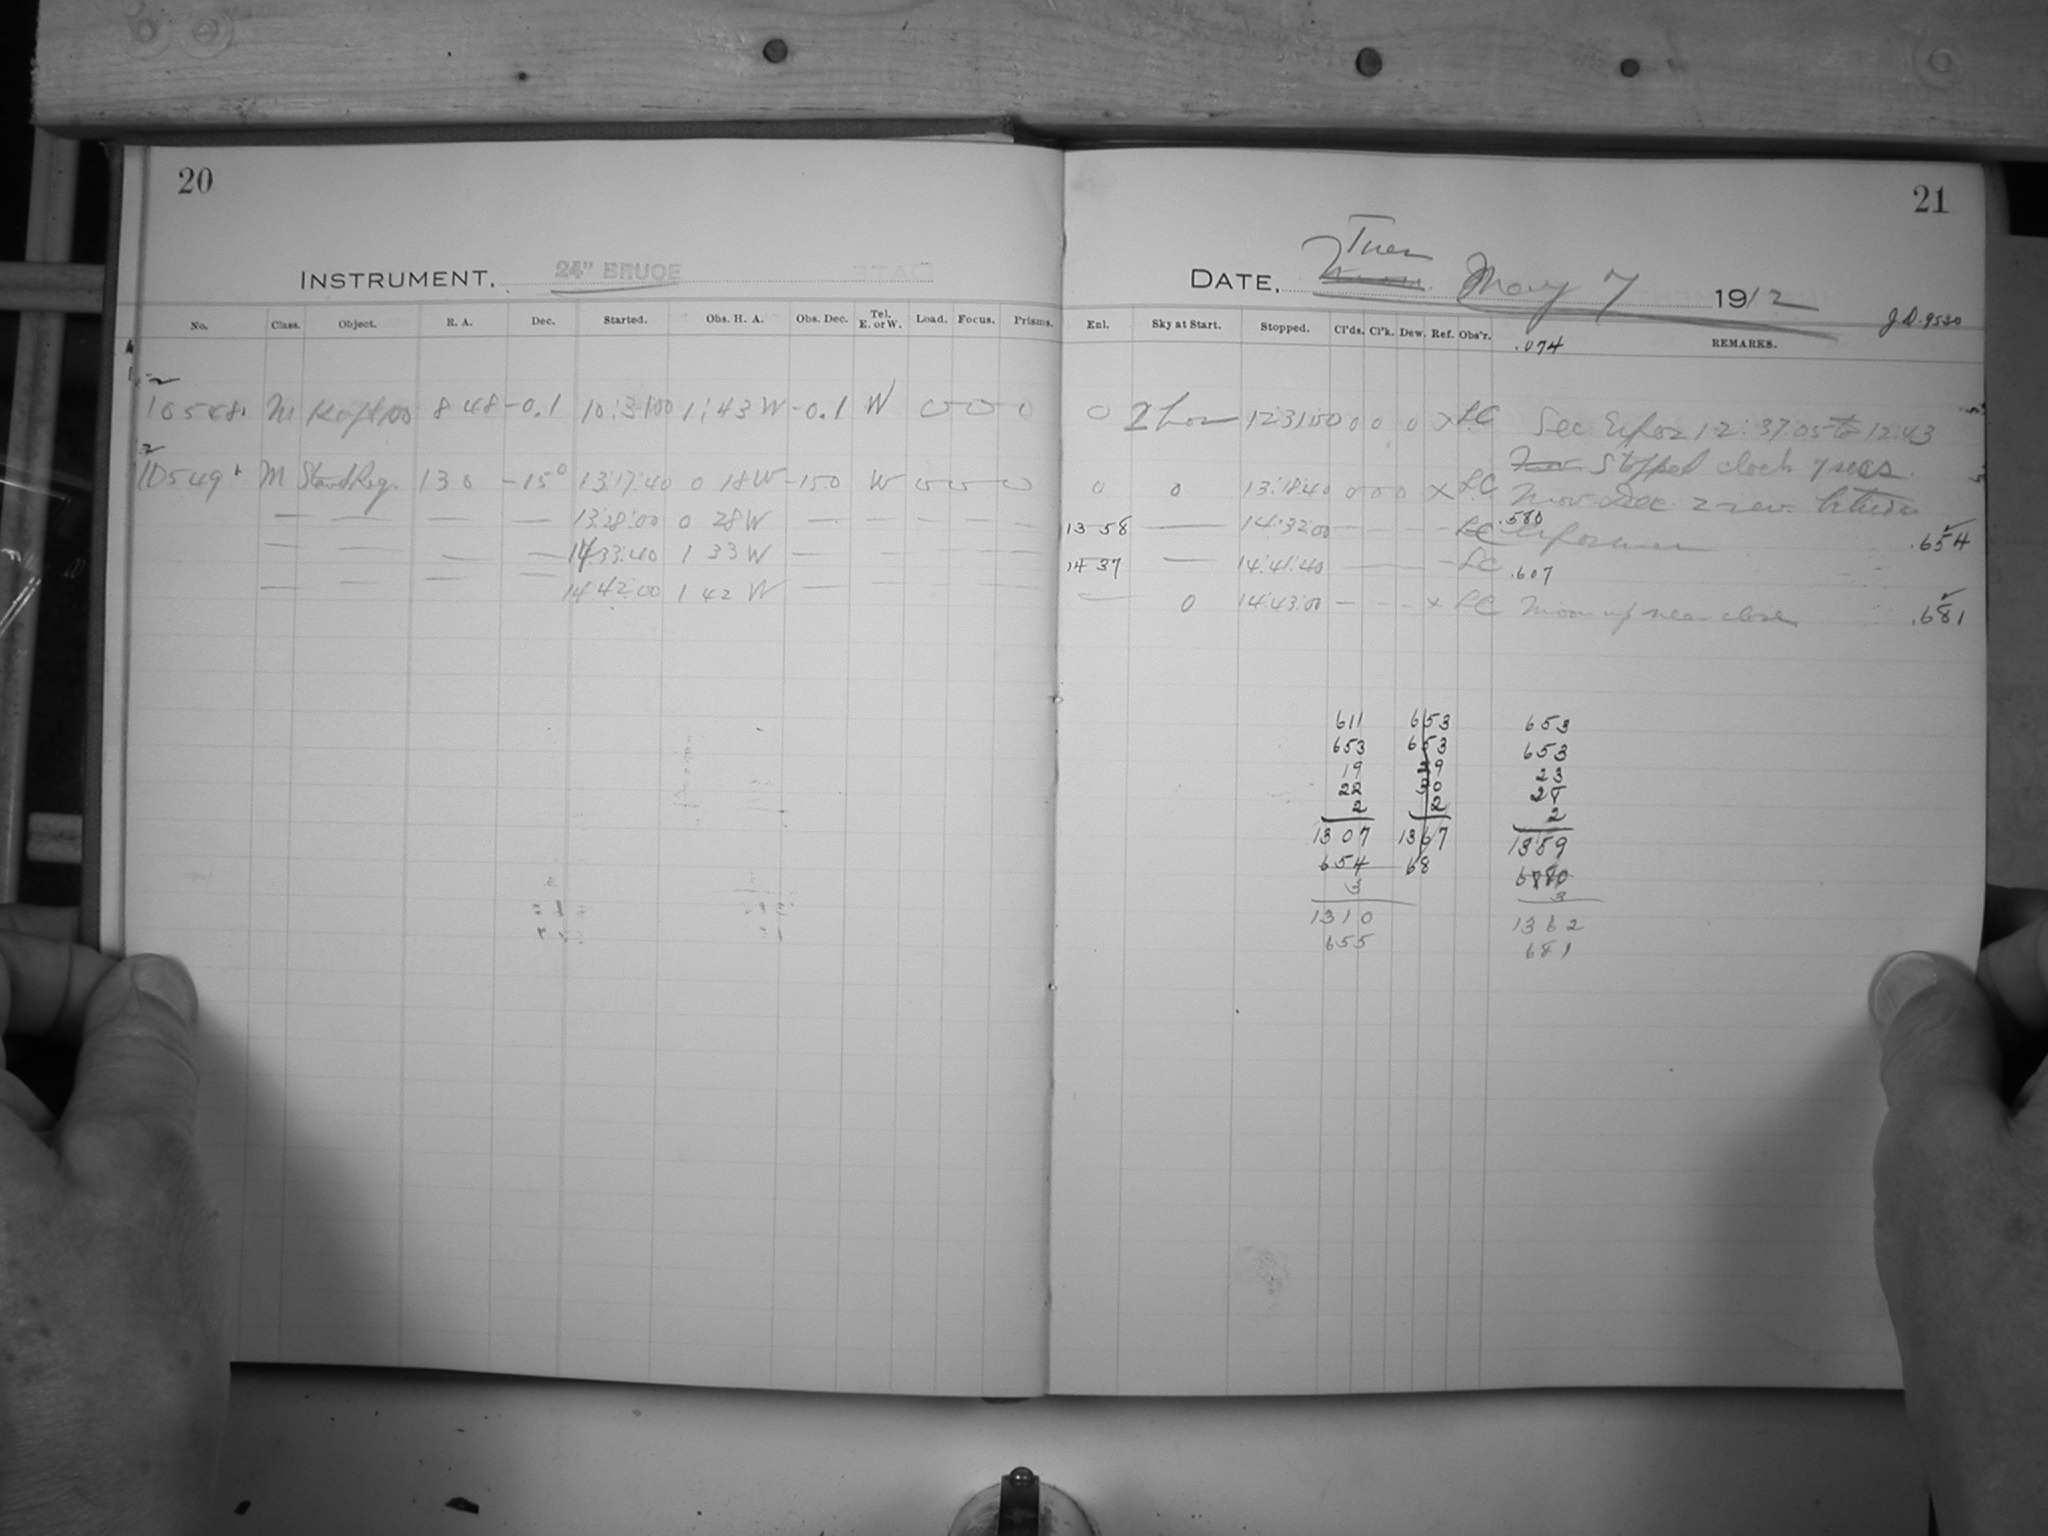 20
INSTRUMENT. 24" BRUCE
No. Class. Object. R. A. Dec. Started. Obs. H. A. Obs. Dec. Tel. E. or W. Load. Focus. Prisms.
10548 M 8 48 -0.1 10:31:00 1:43 W -0.1 W 0 0 0
10549 M Stand Reg. 13 0 -15° 13:17:40 0 18 W -15 0 W 0 0 0
— — — — 13:28:00 0 28 W — — — — —
— — — — 14:33:40 1 33 W — — — — —
— — — — 14 42:00 1 42 W — — — — —
21
DATE, Tues May 7 1912
J.D. 9530
Enl. Sky at Start. Stopped. Cl'ds. Cl'k. Dew. Ref. Obs'r. .074 REMARKS.
0 12:31:00 0 0 0 x LC Sec. Expos 12:37:05 to 12:43
Stopped clock 7 secs.
0 0 13:18:40 0 0 0 x LC Mov Dec. 2 rev. between
13 58 — 14:32:00 — — — — LC .580 exposures .654
14 37 — 14:41:40 — — — — LC .607
— 0 14:43:00 — — — x LC Moon up near close .681
611 653 653
653 653 653
19 29 23
22 30 28
2 2 2
1307 1367 1359
654 68 680
3 3
1310 1362
655 681